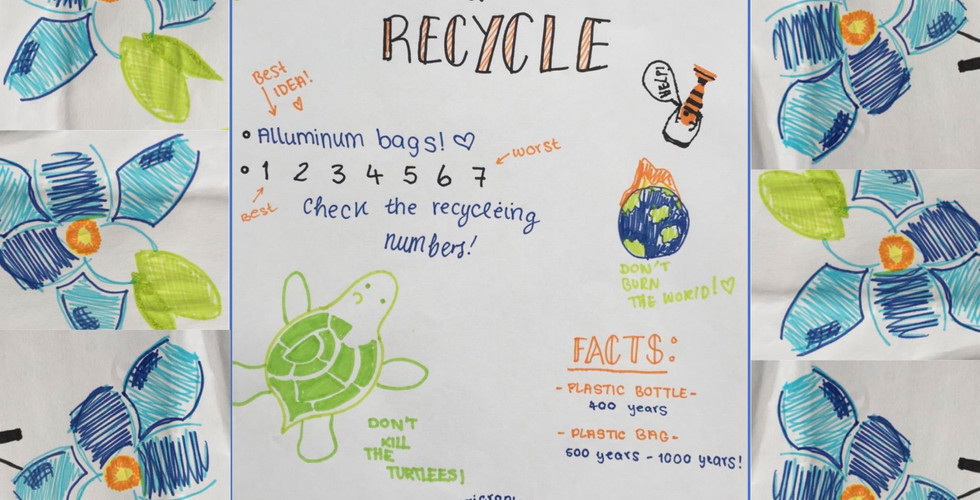 RECYCLE
Best
IDEA!
HELP!
Alluminum bags!
worst
1 2 3 4 5 6 7
Best
Check the recycleing
numbers!
DON'T
BURN
THE WORLD!
FACTS:
- PLASTIC BOTTLE -
400 years
- PLASTIC BAG -
500 years - 1000 years!
DON'T
KILL
THE
TURTLEES!